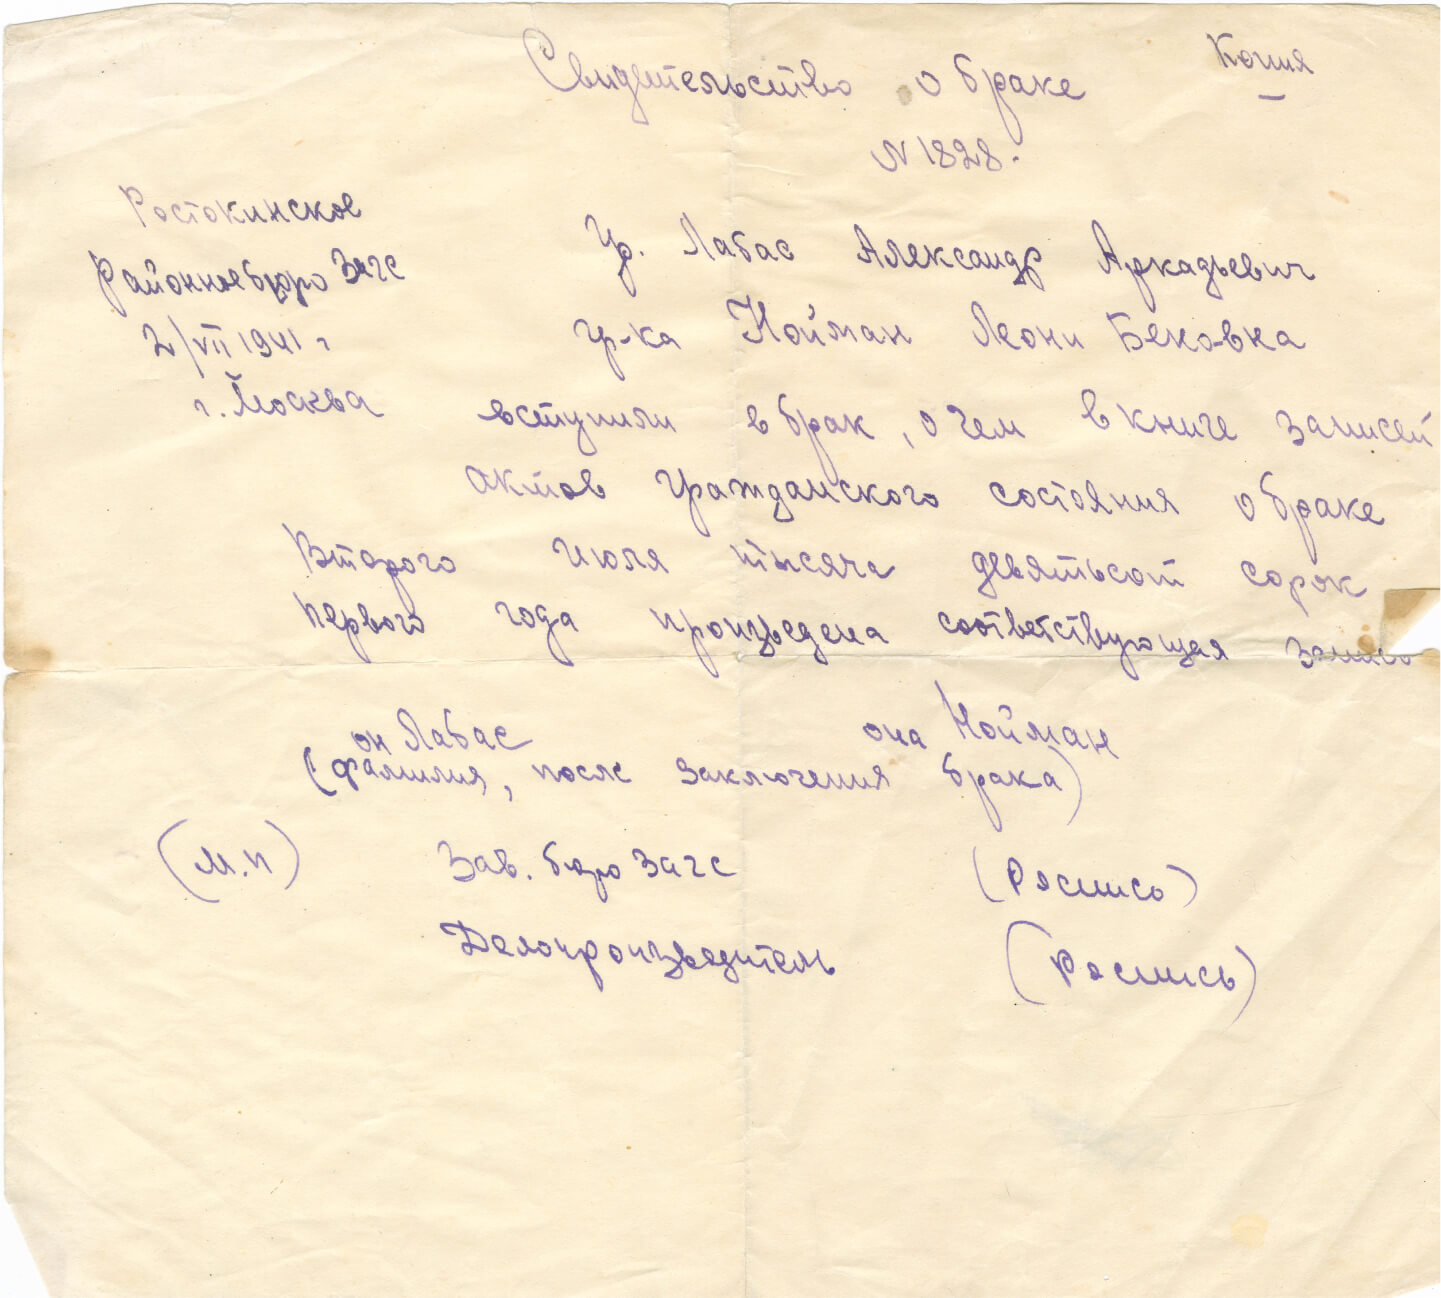 Копия
Свидетельство о браке
N 1828.
Ростокинское
Районное бюро Загс
2/VII 1941 г
г. Москва
Гр. Лабас Александр Аркадьевич
Гр-ка Нойман Леони Бековна
вступили в брак, о чем в книге записей
актов гражданского состояния о браке
Второго июля тысяча девятьсот сорок
первого года произведена соответствующая запись
он Лабас она Нойман
(фамилия, после заключения брака)
(М.П) Зав. бюро Загс (Роспись)
Делопроизводитель (Роспись)